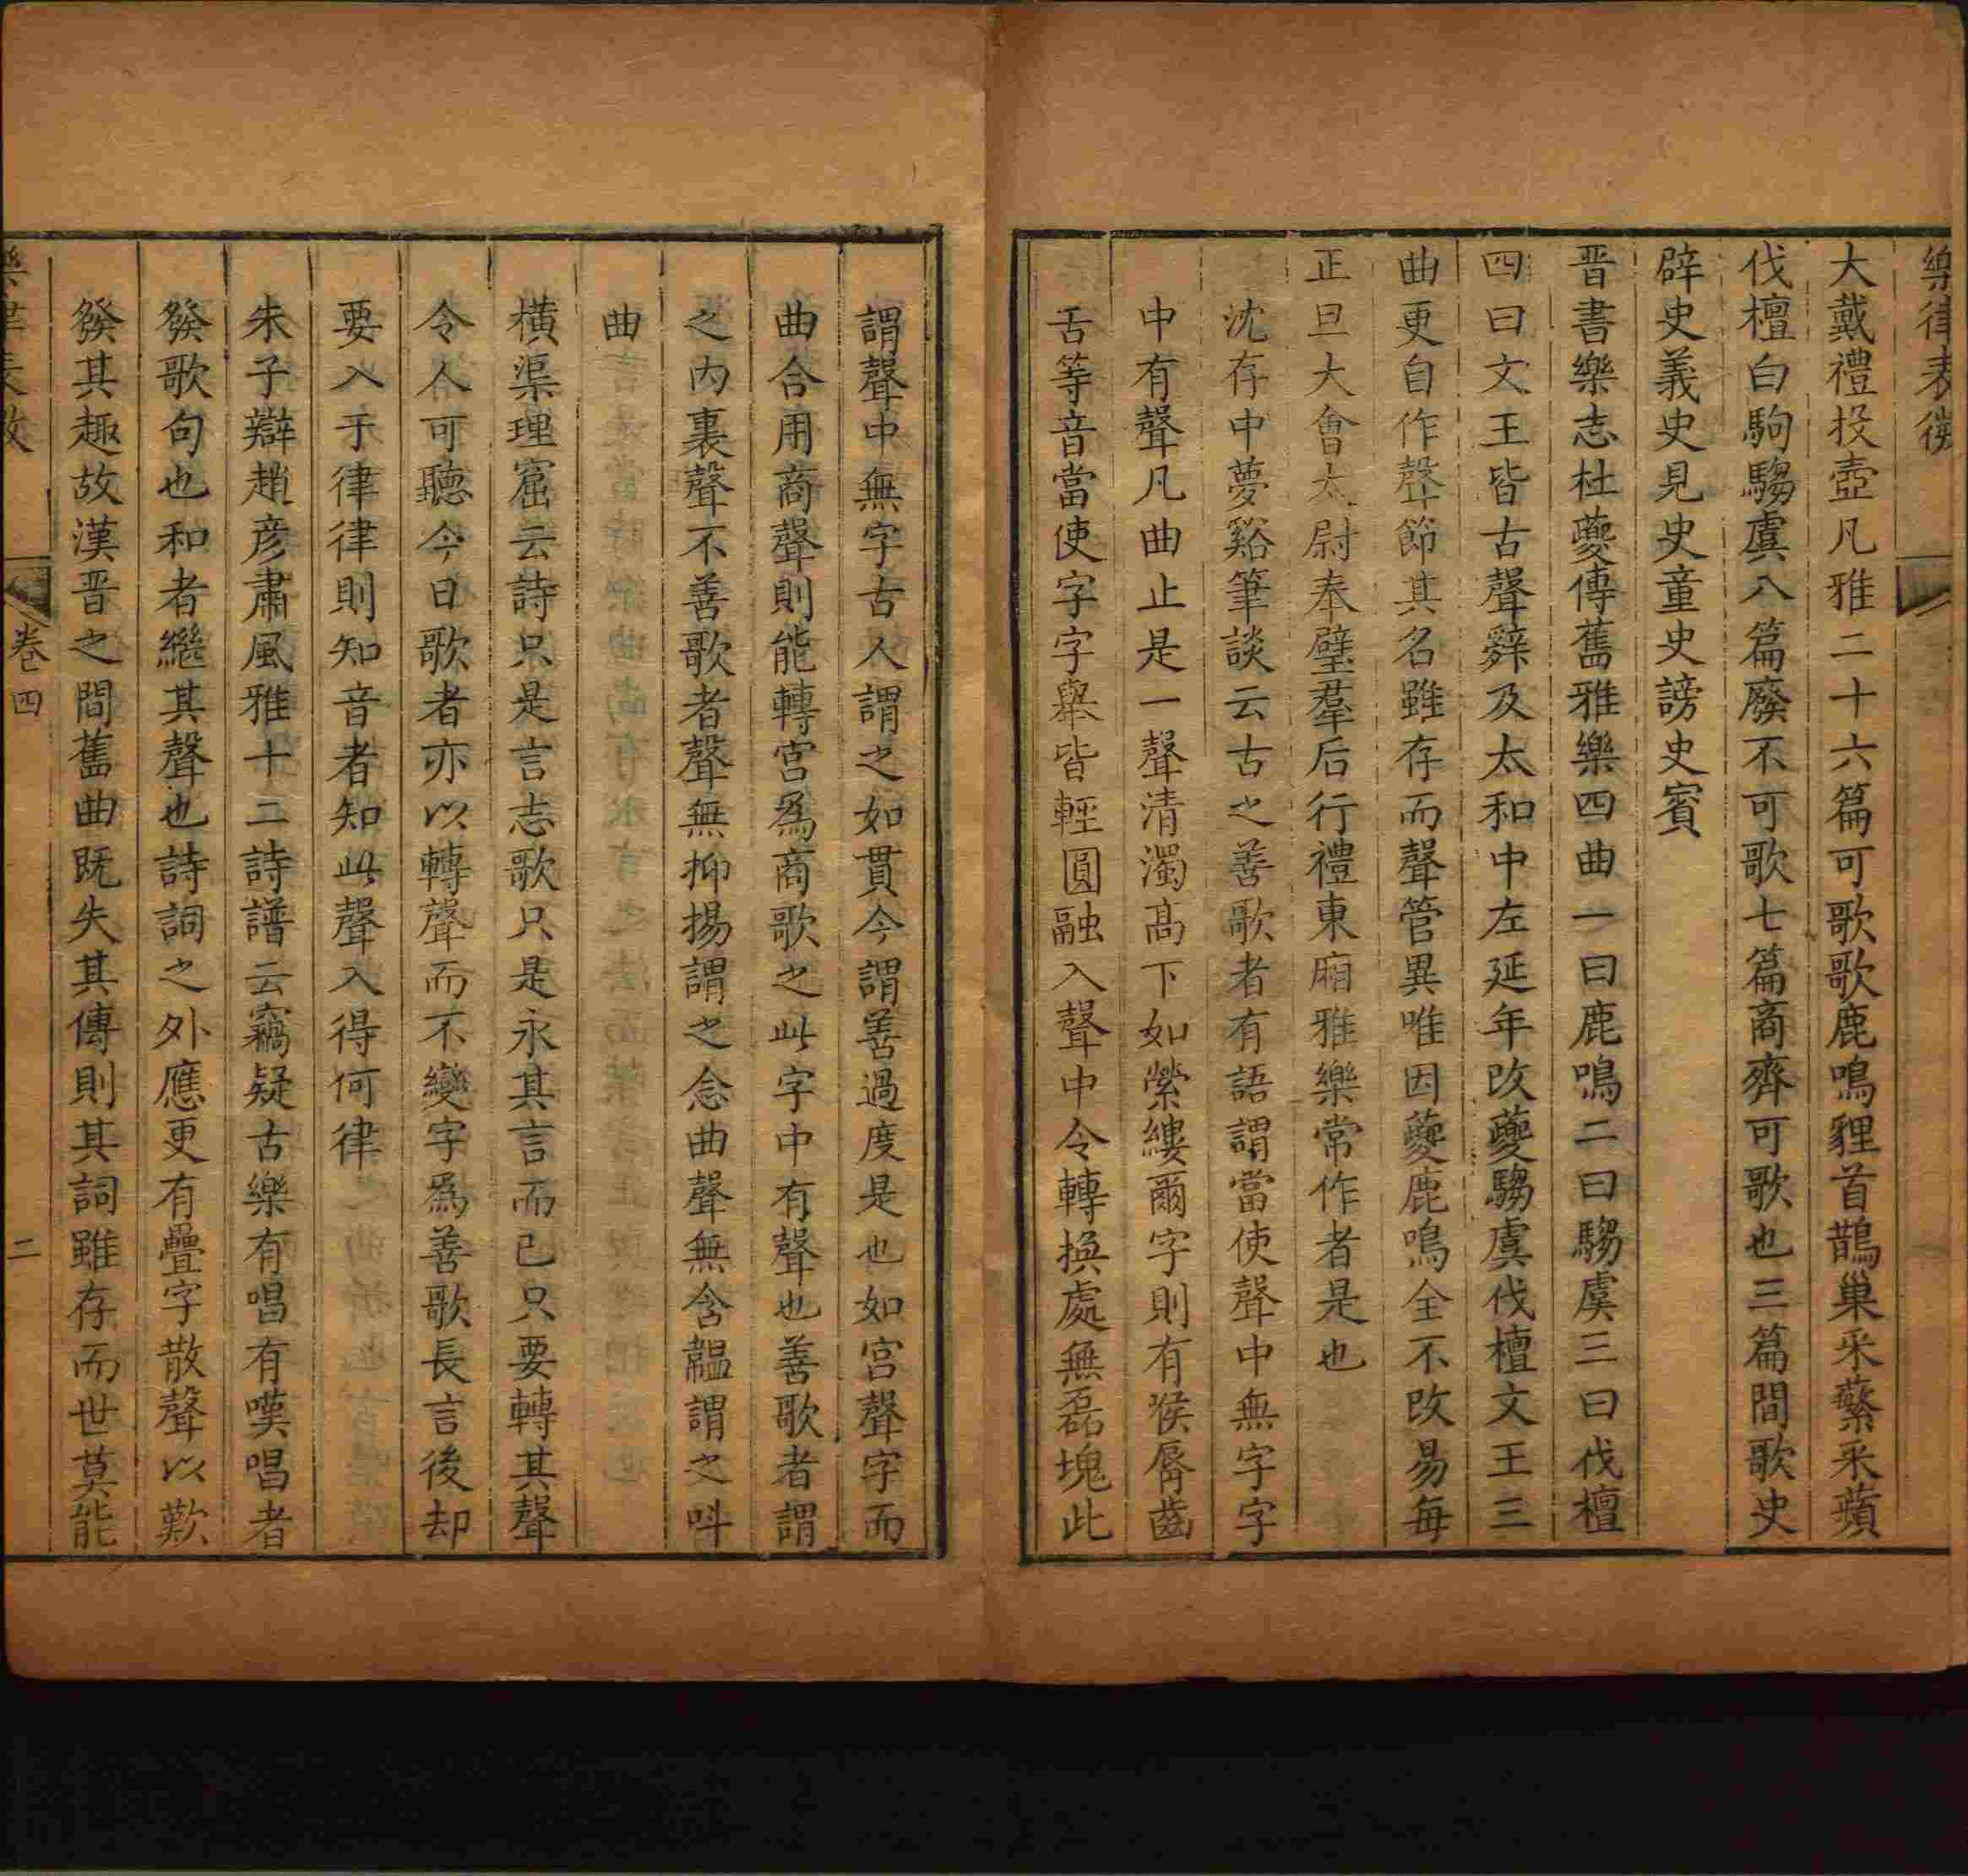 樂律表微
大戴禮投壺凡雅二十六篇可歌歌鹿鳴貍首鵲巢采蘩采蘋
伐檀白駒騶虞八篇廢不可歌七篇商齊可歌也三篇間歌史
辟史義史見史童史謗史賓
晋書樂志杜夔傳舊雅樂四曲一曰鹿鳴二曰騶虞三曰伐檀
四曰文王皆古聲辭及太和中左延年改夔騶虞伐檀文王三
曲更自作聲節其名雖存而聲管異唯因夔鹿鳴全不改易每
正旦大會太尉奉璧羣后行禮東廂雅樂常作者是也
沈存中夢谿筆談云古之善歌者有語謂當使聲中無字字
中有聲凡曲止是一聲清濁高下如縈縷爾字則有喉脣齒
舌等音當使字字舉皆輕圓融入聲中令轉換處無磊塊此
謂聲中無字古人謂之如貫今謂善過度是也如宮聲字而
曲合用商聲則能轉宮爲商歌之此字中有聲也善歌者謂
之內裏聲不善歌者聲無抑揚謂之念曲聲無含韞謂之呌
曲
橫渠理窟云詩只是言志歌只是永其言而已只要轉其聲
令人可聽今日歌者亦以轉聲而不變字爲善歌長言後却
要入于律律則知音者知此聲入得何律
朱子辯趙彦肅風雅十二詩譜云竊疑古樂有唱有嘆唱者
發歌句也和者繼其聲也詩詞之外應更有疊字散聲以歎
發其趣故漢晋之間舊曲既失其傳則其詞雖存而世莫能
樂律表微
卷四
二